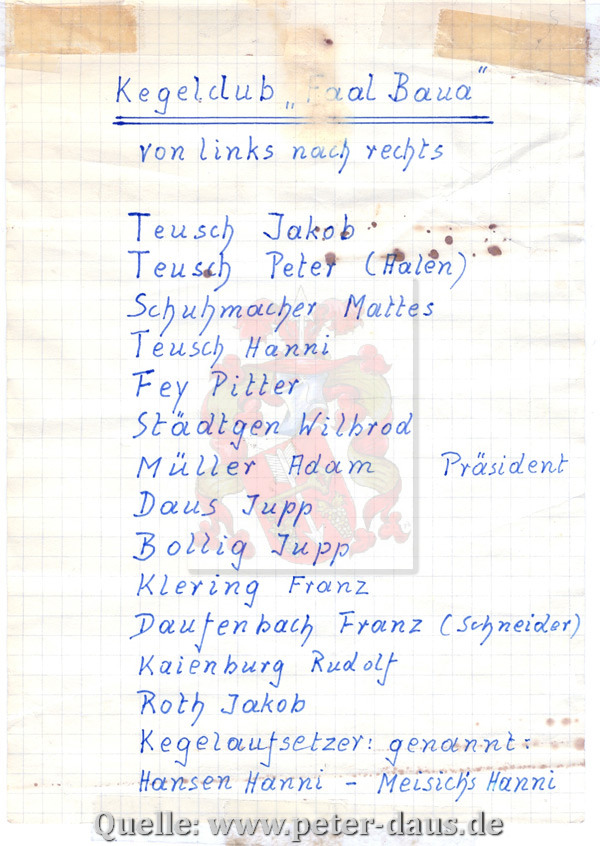 Kegelclub „Faal Baua"
von links nach rechts
Teusch Jakob
Teusch Peter (Aalen)
Schuhmacher Mattes
Teusch Hanni
Fey Pitter
Städtgen Wilbrod
Müller Adam Präsident
Daus Jupp
Bollig Jupp
Klering Franz
Daufenbach Franz (Schneider)
Kaienburg Rudolf
Roth Jakob
Kegelaufsetzer: genannt:
Hansen Hanni - Meisich's Hanni
Quelle: www.peter-daus.de